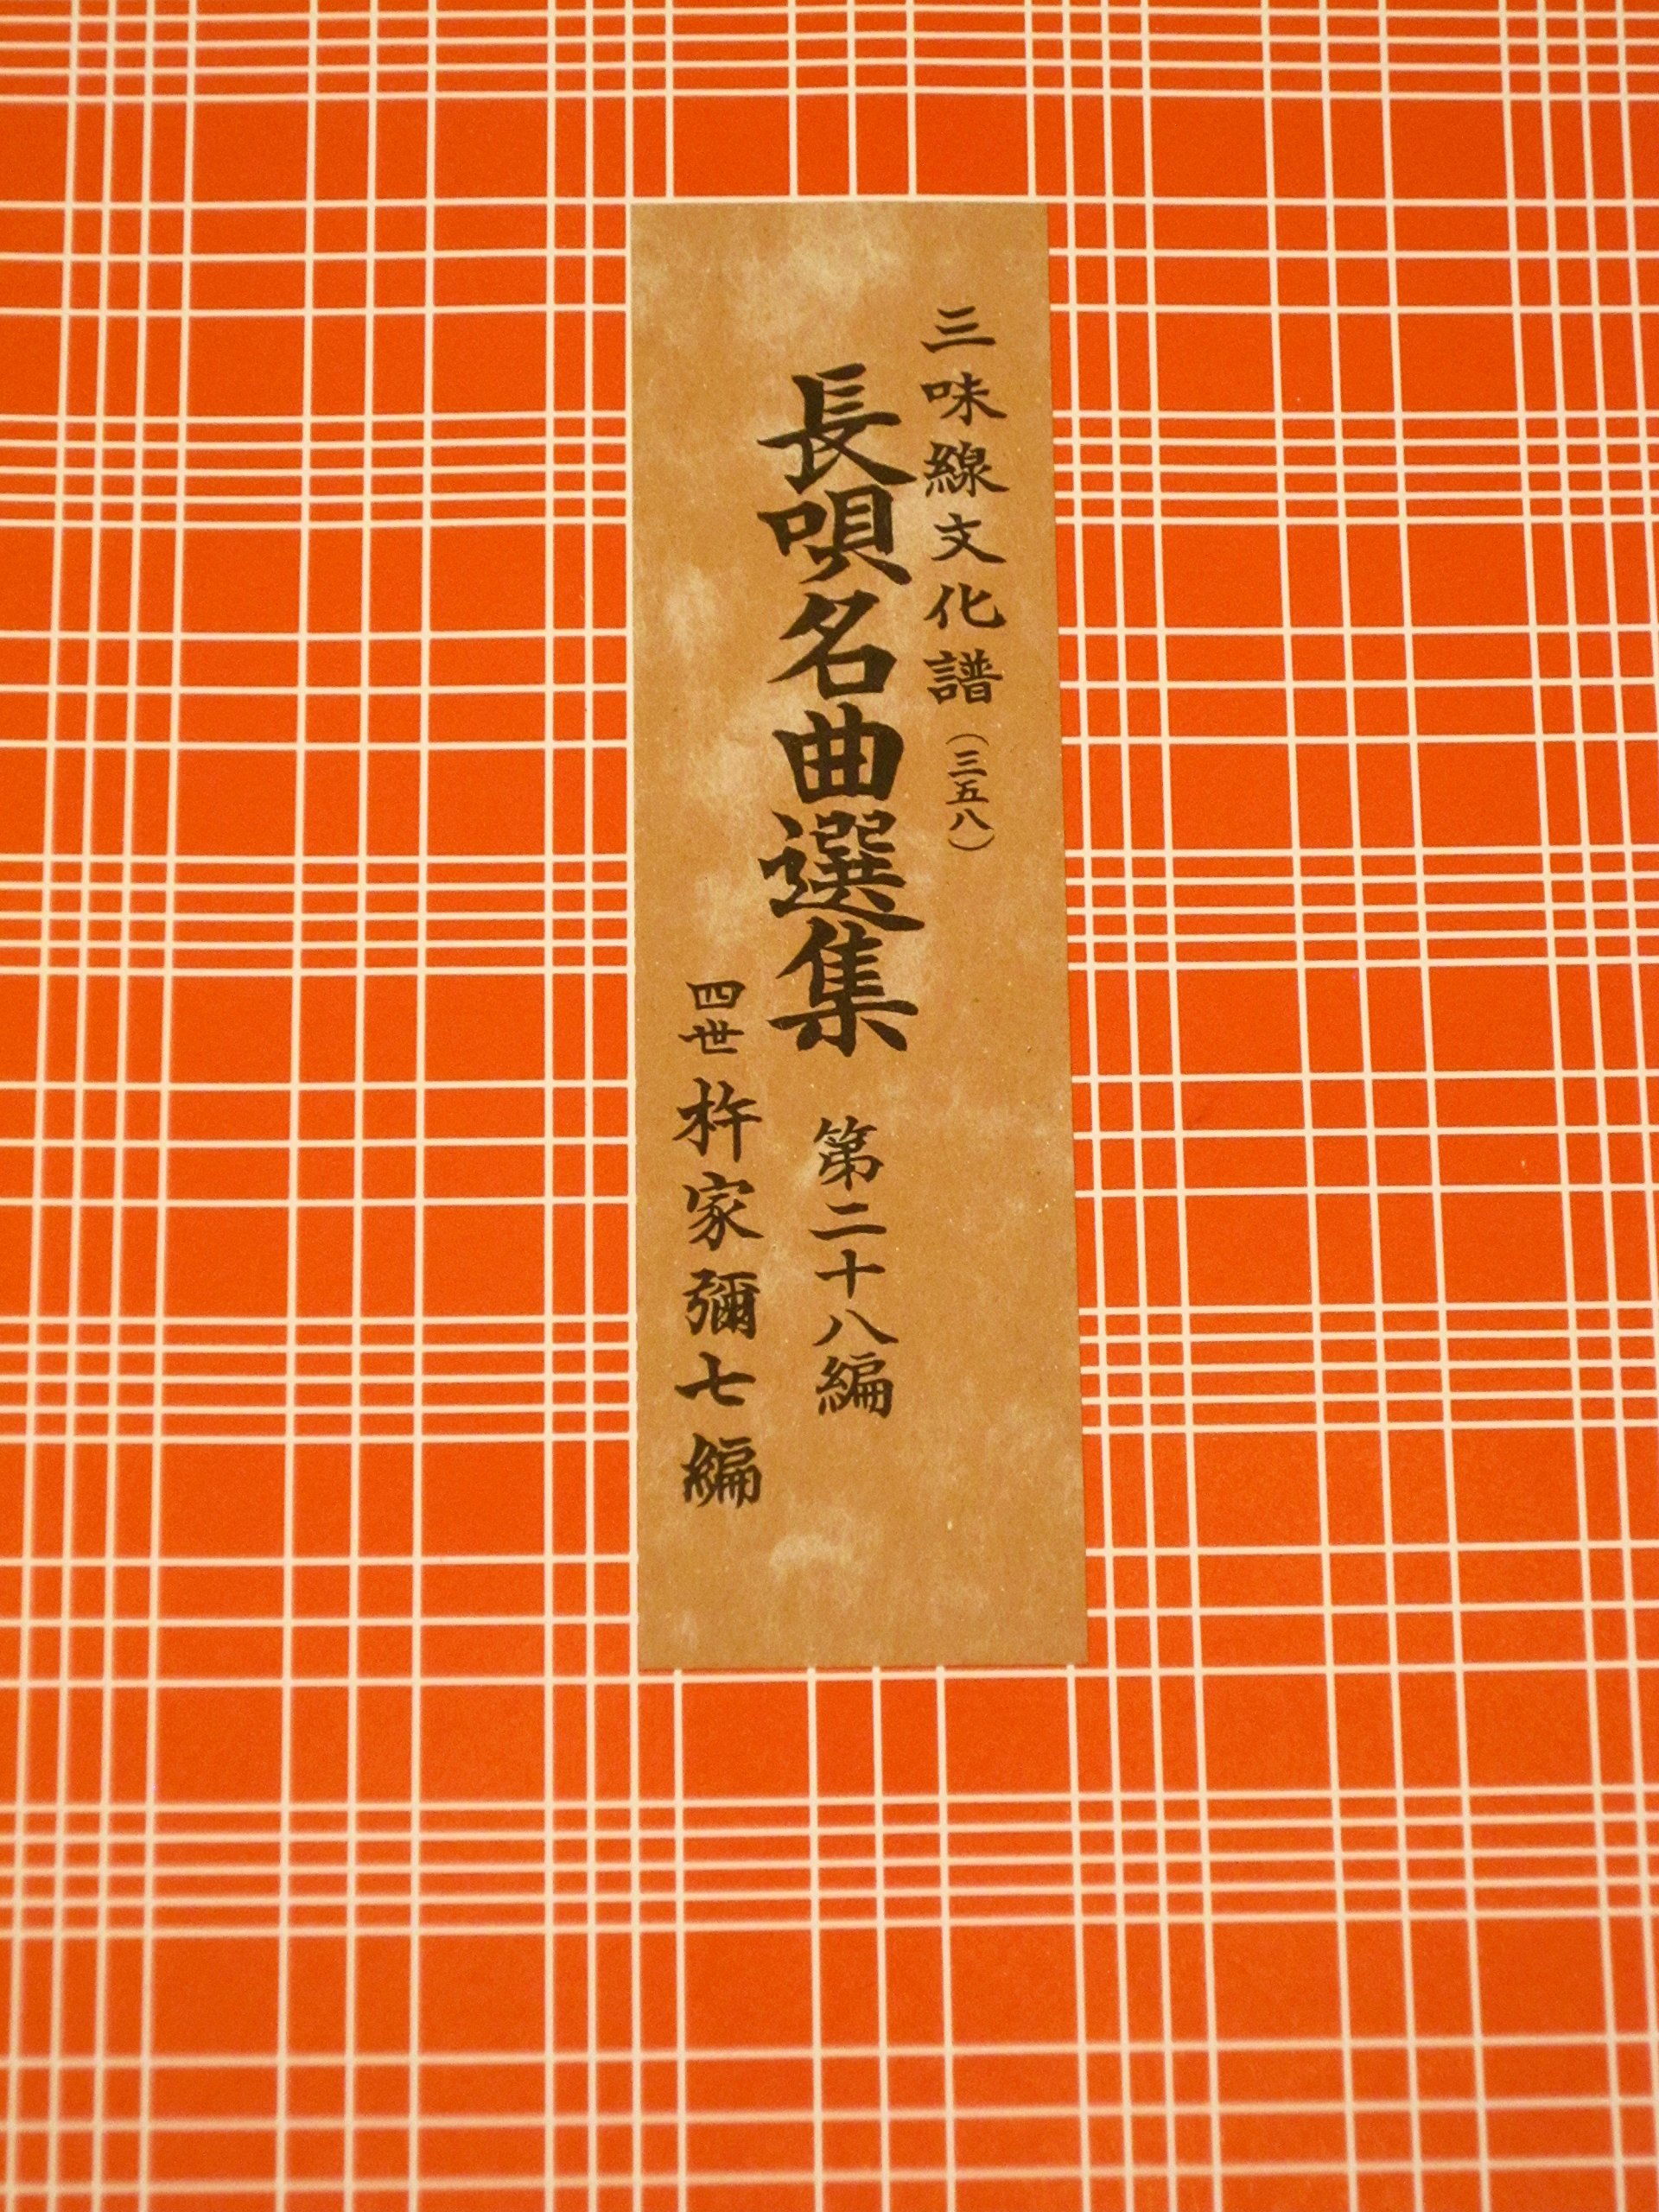 三味線文化譜（三五八）
長唄名曲選集　第二十八編
四世　杵家彌七編